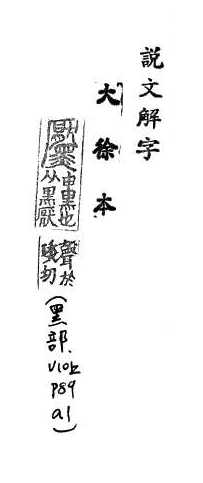 說文解字
大徐本
黶
中黑也
从黑厭
聲於
琰切
(黑部. V10上 P89 a1)